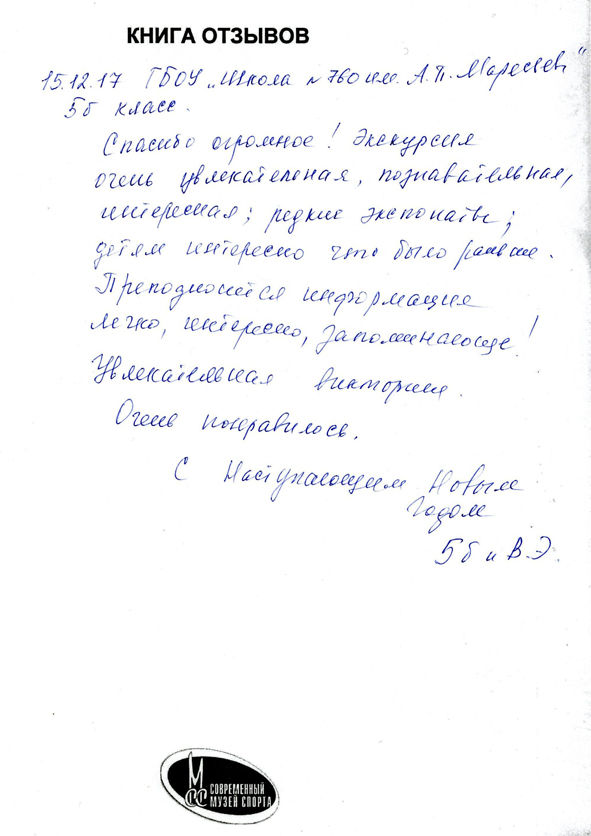 КНИГА ОТЗЫВОВ
15.12.17 ГБОУ „Школа №760 им. А.П. Маресьев"
5б класс.
Спасибо огромное! Экскурсия
очень увлекательная, познавательная,
интересная; редкие экспонаты;
детям интересно что было раньше.
Преподносится информация
легко, интересно, запоминающе!
Увлекательная викторина.
Очень понравилось.
С Наступающим Новым
Годом
5б и В.Э.
М
СС СОВРЕМЕННЫЙ
МУЗЕЙ СПОРТА